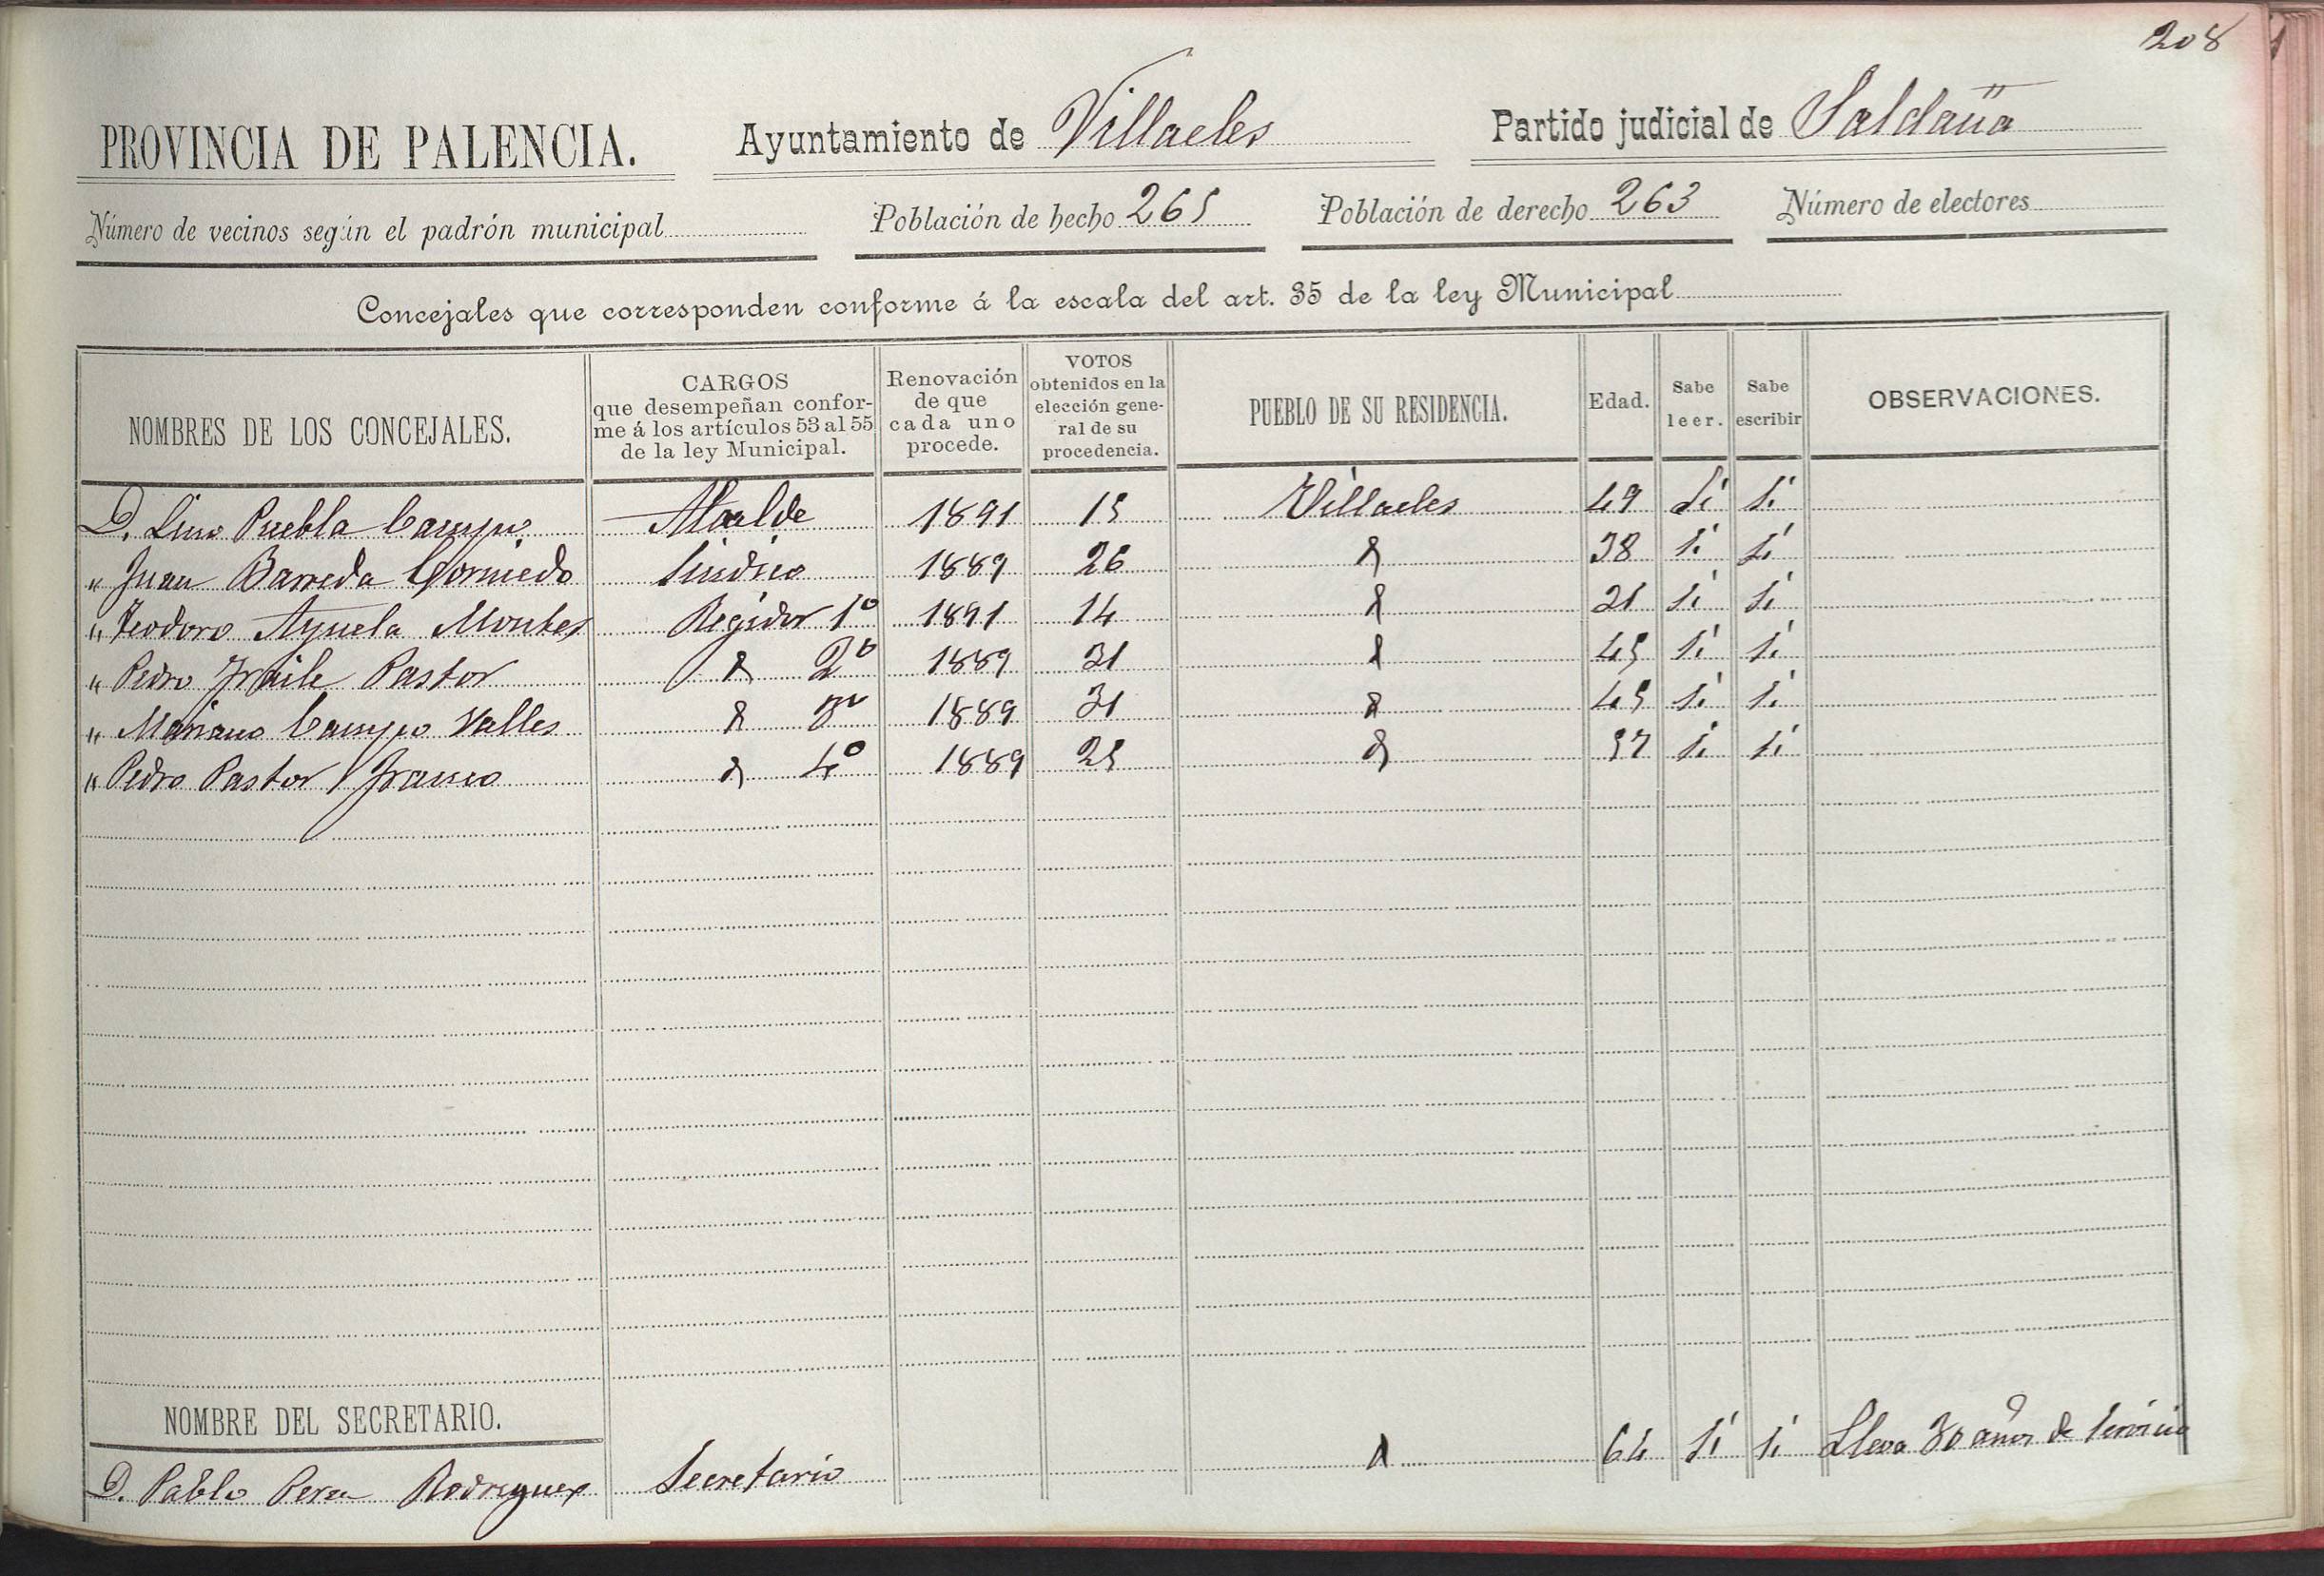 208
PROVINCIA DE PALENCIA. Ayuntamiento de Villaeles Partido judicial de Saldaña
Número de vecinos según el padrón municipal Población de hecho 265 Población de derecho 263 Número de electores
Concejales que corresponden conforme á la escala del art. 35 de la ley Municipal
NOMBRES DE LOS CONCEJALES.
CARGOS
que desempeñan confor-
me á los artículos 53 al 55
de la ley Municipal.
Renovación
de que
cada uno
procede.
VOTOS
obtenidos en la
elección gene-
ral de su
procedencia.
PUEBLO DE SU RESIDENCIA.
Edad.
Sabe
leer.
Sabe
escribir
OBSERVACIONES.
D. Lino Puebla Campo Alcalde 1891 15 Villaeles 49 Sí Sí
" Juan Barreda Gormedo Sindico 1889 26 " 38 Sí Sí
" Teodoro Ayuela Montes Regidor 1º 1891 14 " 31 Sí Sí
" Pedro Fraile Pastor " 2º 1889 31 " 45 Sí Sí
" Mariano Campo Valles " 3º 1889 31 " 45 Sí Sí
" Pedro Pastor Franco " 4º 1889 25 " 57 Sí Sí
NOMBRE DEL SECRETARIO.
D. Pablo Rodriguez Secretario " 64 Sí Sí Lleva 30 años de servicio